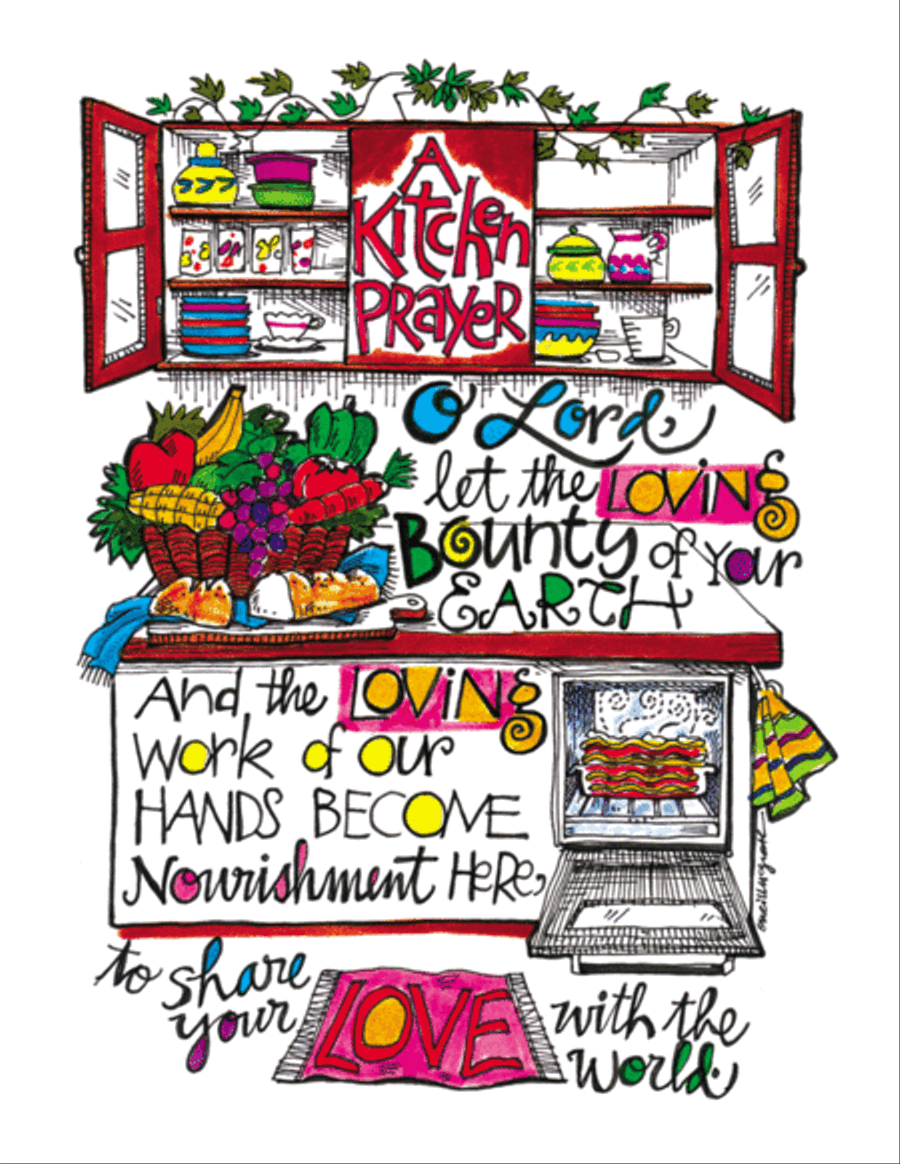 A
Kitchen
PRAYER
O Lord,
let the LOViNg
Bounty of your
EARTH
And the LOViNg
work of our
HANDS BECOME
Nourishment HeRe,
to share
your LOVE with the
world.